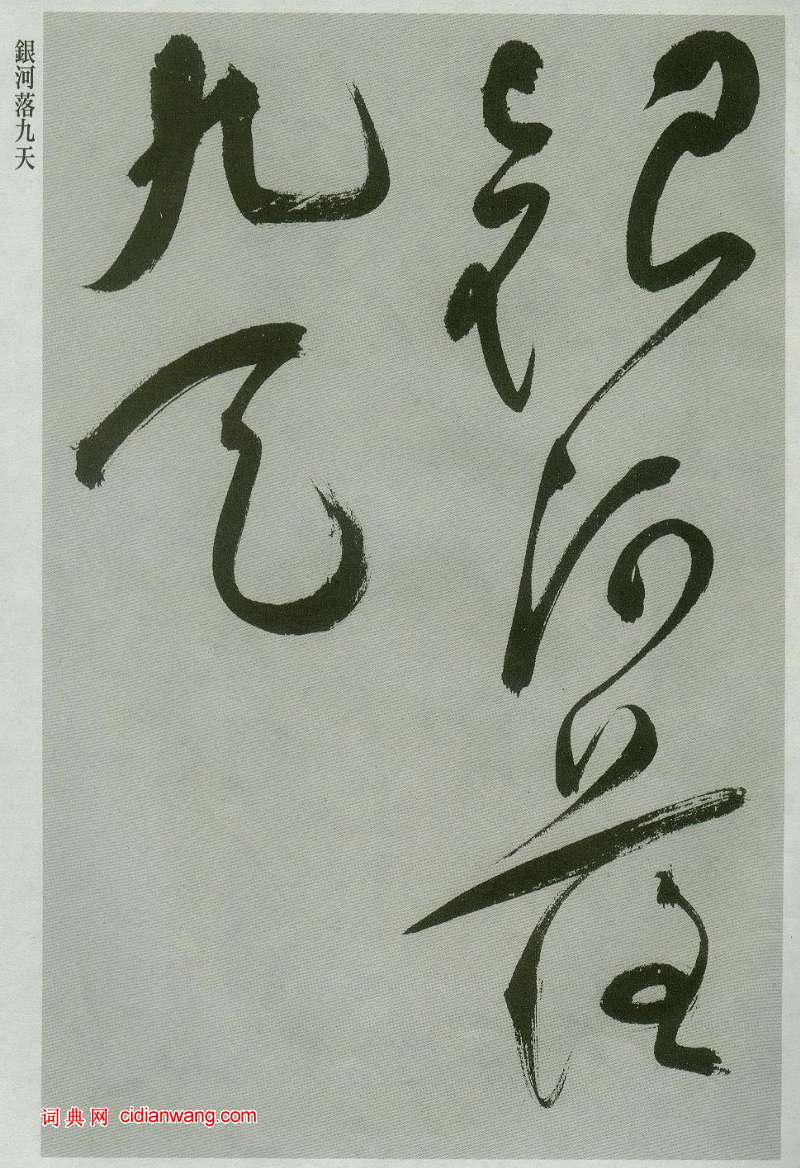 銀河落
九天
銀河落九天
词典网 cidianwang.com